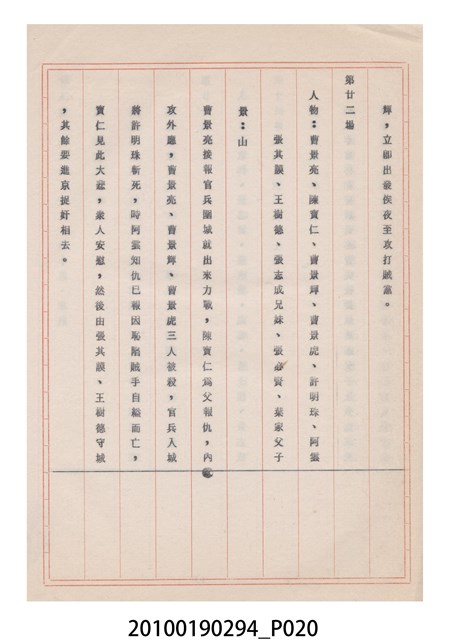 輝，立即出發俟夜至攻打賊黨。
第廿二場
人物：曹景亮、陳寶仁、曹景輝、曹景虎、許明珠、阿雲
張其謨、王樹德、張志成兄妹、張必賢、葉家父子
景：山
曹景亮接報官兵圍城就出來力戰，陳寶仁為父報仇，內
攻外應，曹景亮、曹景輝、曹景虎三人被殺，官兵入城
將許明珠斬死，時阿雲知仇已報因恥陷賊手自縊而亡，
寶仁見此大悲，衆人安慰，然後由張其謨、王樹德守城
，其餘要進京捉奸相去。
20100190294_P020